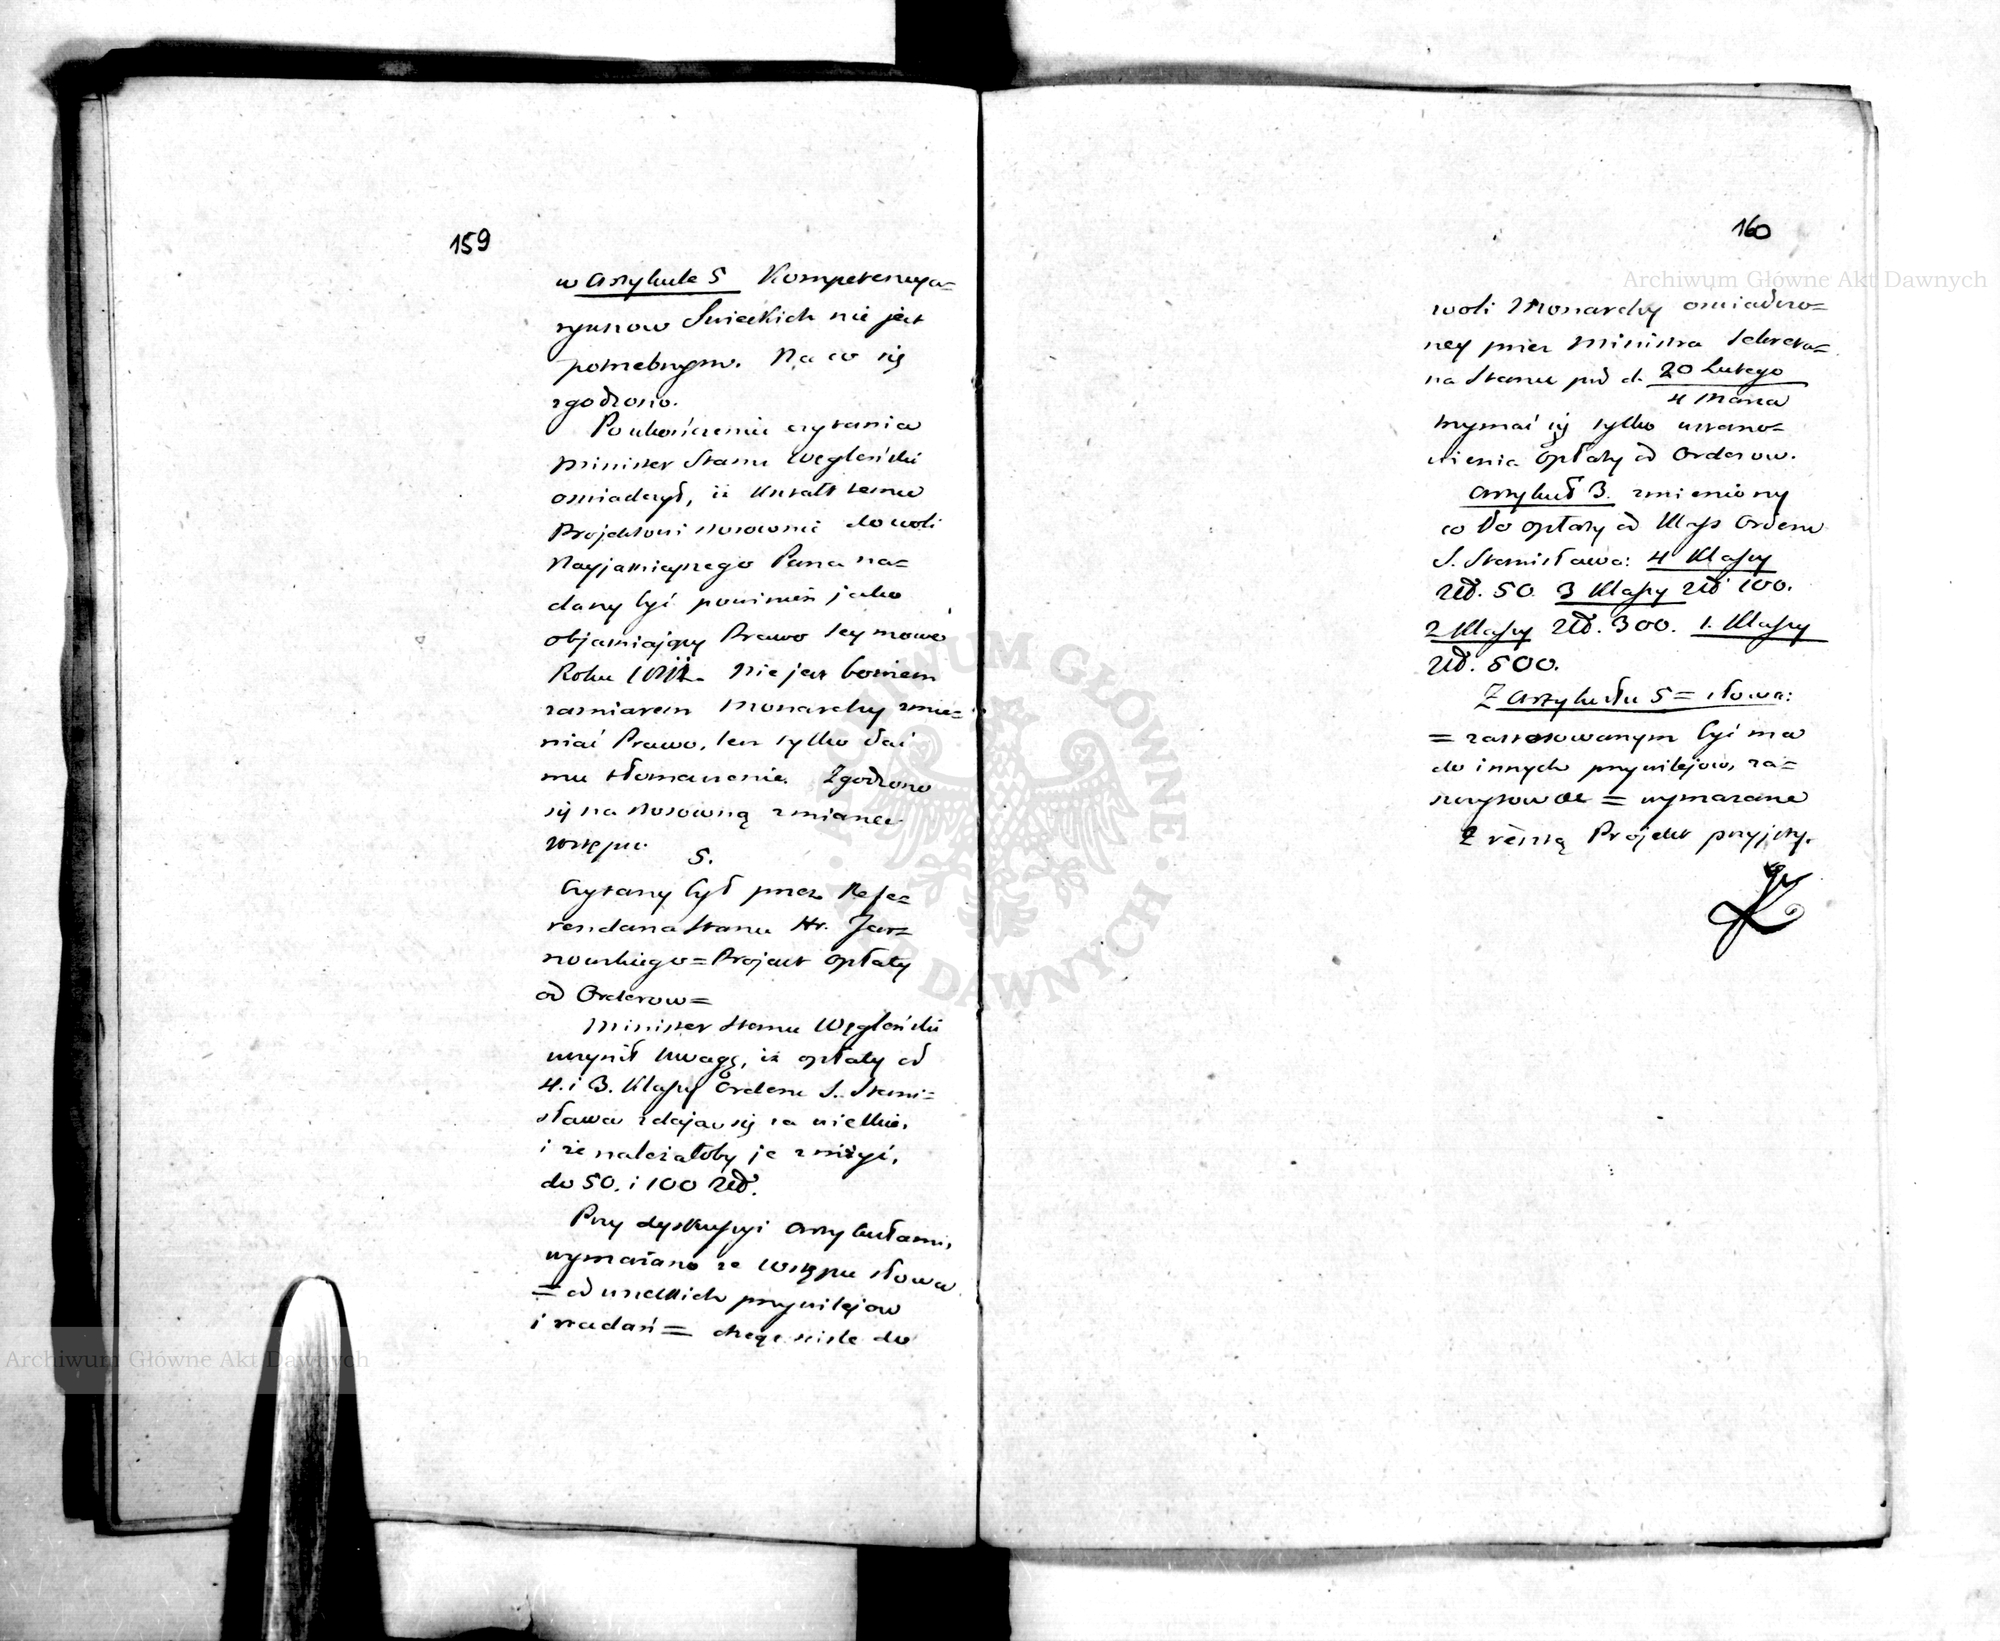 159
w Artykule 5 Kompetencya
rynnow Swieckich nie jest
potrzebnym. Na co się
zgodzono.
Po ukończeniu czytania
Minister Stanu Węgleński
oswiadczył, iż kształt temu
Projektowi stosownie do woli
Nayjaśnieyszego Pana na=
dany być powinien jako
objaśniający Prawo Seymowe
Roku Nie jest bowiem
zamiarem Monarchy zmie=
niać Prawo, lecz tylko dać
mu tłomaczenie. Zgodzono
się na stosowną zmianę
wstępu.
5.
Czytany był przez Refe=
rendarza Stanu Hr. Jez=
=Projekt opłaty
od Orderow=
Minister Stanu Węgleński
uczynił uwagę, iż opłaty od
4. i 3. Klassy Orderu S. Stani=
sława zdają się za wielkie,
i że należałoby je zniżyć,
do 50. i 100 Złł.
Przy dyskussyi Artykułami,
wymazano ze wstępu słowa
=od wszelkich przywilejow
i nadań= chcąc scisle do
160
Archiwum Główne Akt Dawnych
woli Monarchy oswiadczo=
ney przez Ministra Sekreta=
rza Stanu pod d. 20 Lutego
4 Marca
trzymać się tylko ustano=
wienia opłaty od Orderow.
Artykuł 3. zmieniony
co do opłaty od Klass Orderu
S. Stanisława: 4 Klassy
Złł. 50. 3 Klassy Złł 100.
2 Klassy Złł. 300. 1. Klassy
Złł. 500.
Z Artykułu 5= słowa:
=zastosowanym być ma
do innych przywilejow, za=
= wymazane
Z resztą Projekt przyjęty.
ARCHIWUM GŁÓWNE AKT DAWNYCH
Archiwum Główne Akt Dawnych